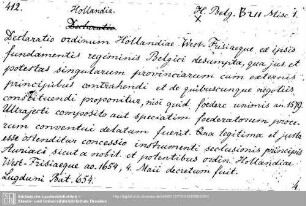 412. Hollandia. H. Belg. B 211 Misc. 1.
Declaratio
Declaratio ordinum Hollandiae West-Frisiaeque ex ipsis
fundamentis regiminis Belgici desumpta, qua jus et
potestas singularum provinciarum cum externis
principibus contrahendi et de quibuscunque negotiis
constituendi proponitur, nisi quid foedere unionis an. 1579
Ultrajecti composito aut speciatim foederatorum proce-
rum conventui delatum fuerit. Una legitima et justa
esse ostenditur concessio instrumenti seclusionis principis
Auriaci sicut a nobil. et potentibus ordin. Hollandiae
West-Frisiaeque ao. 1654, 4. Maii decretum fuit.
Lugduni Bat. 654.